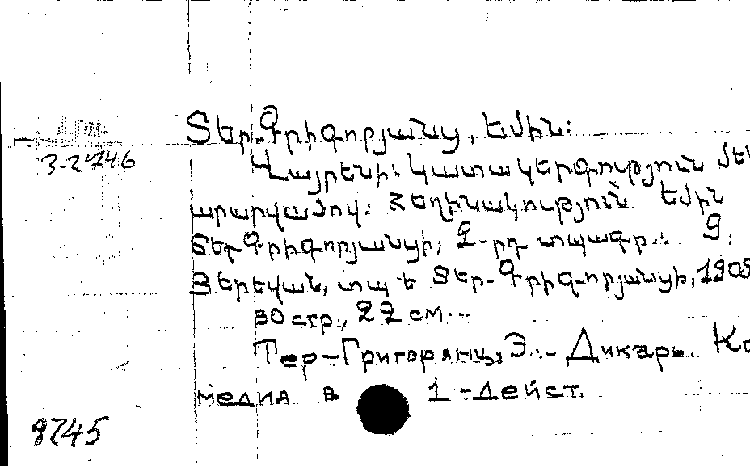 Տեր-Գրիգորյանց, Եմին:
3-2746
Վայրենի: Կատակերգություն մեկ
արարվածով: Հեղինակություն Եմին
Տեր-Գրիգորյանցի, 2-րդ տպագր.: Գ.
Յերեվան, տպ Ե Տեր-Գրիգորյանցի, 1908
30 стр., 22 см.
Тер-Григорянц, Э. - Дикарь. Ко
медия в 1 -дейст.
8745